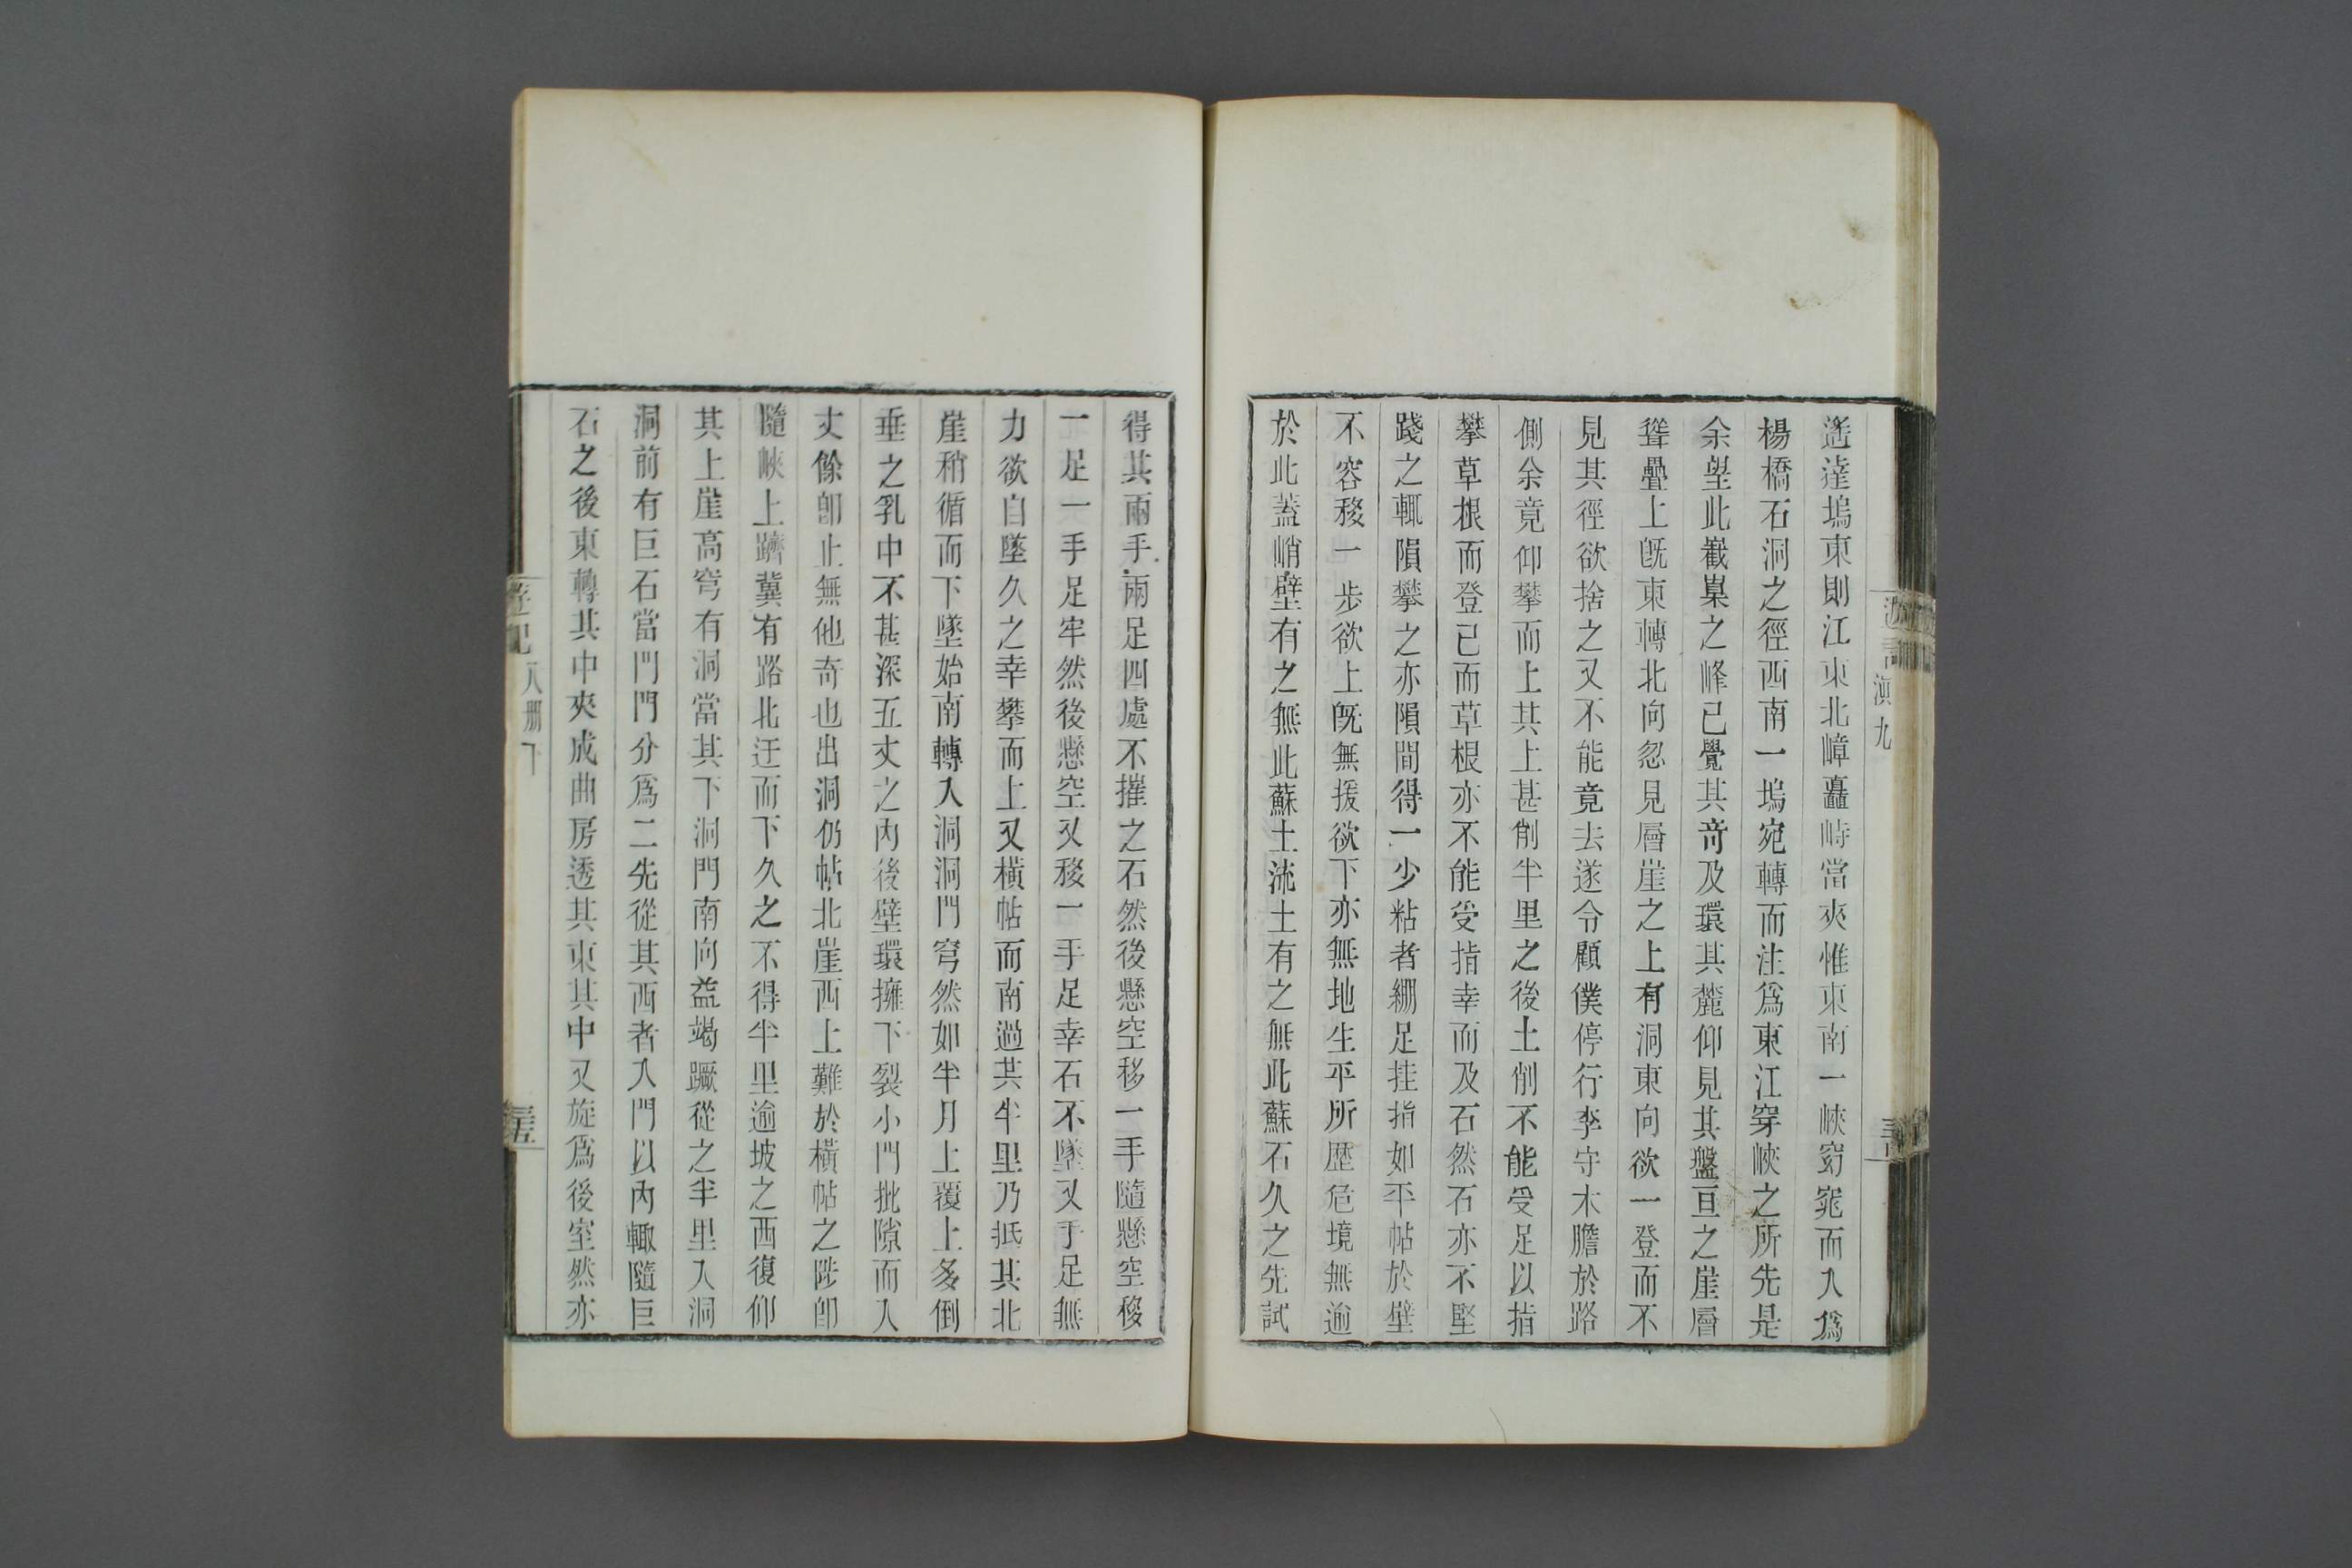 遙達塢東則江東北嶂矗峙當夾惟東南一峽窈窕而入爲
楊橋石洞之徑西南一塢宛轉而注爲東江穿峽之所先是
余望此巀嶪之峰已覺其奇及環其麓仰見其盤亘之崖層
聳疊上旣東轉北向忽見層崖之上有洞東向欲一登而不
見其徑欲捨之又不能竟去遂令顧僕停行李守木膽於路
側余竟仰攀而上其上甚削半里之後土削不能受足以指
攀草根而登已而草根亦不能受指幸而及石然石亦不堅
踐之輒隕攀之亦隕間得一少粘者綳足挂指如平帖於壁
不容移一步欲上旣無援欲下亦無地生平所歷危境無逾
於此蓋峭壁有之無此蘇土流土有之無此蘇石久之先試
得其兩手兩足四處不摧之石然後懸空移一手隨懸空移
一足一手足牢然後懸空又移一手足幸石不墜又手足無
力欲自墜久之幸攀而上又橫帖而南過其半里乃抵其北
崖稍循而下墜始南轉入洞洞門穹然如半月上覆上多倒
垂之乳中不甚深五丈之內後壁環擁下裂小門批隙而入
丈餘卽止無他奇也出洞仍帖北崖西上難於橫帖之陟卽
隨峽上躋冀有路北迂而下久之不得半里逾坡之西復仰
其上崖高穹有洞當其下洞門南向益竭蹶從之半里入洞
洞前有巨石當門門分爲二先從其西者入門以內輒隨巨
石之後東轉其中夾成曲房透其東其中又旋爲後室然亦
滇九
遊記
八册下
三五